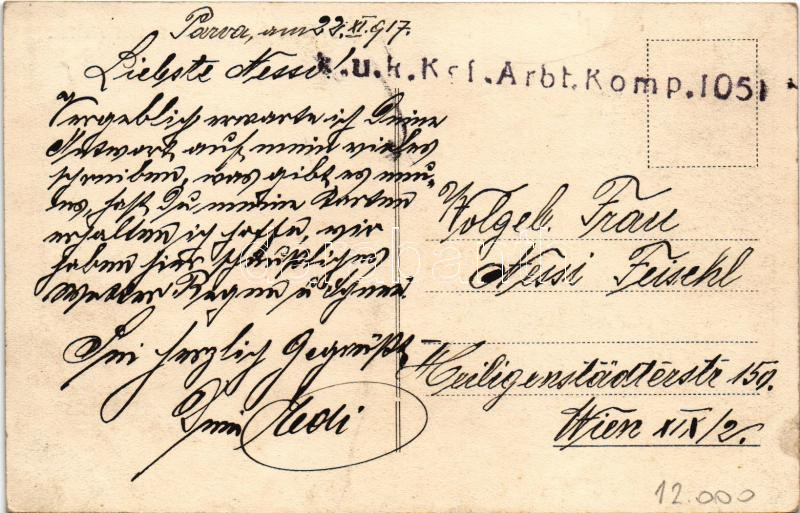 Parva, am 22.XI.917.
Liebste Nessi!
K.u.k. Kgf. Arbt. Komp. 1051
Vergeblich erwarte ich Deine
Antwort auf mein vieles
schreiben, was gibt es neu-
es, hast Du meine Karten
erhalten ich hoffe, wir
haben hier scheußliches
Wetter Regen u Schnee.
Sei herzlich Gegrüßt
Dein Nedi
Wolgeb. Frau
Nessi Feischl
Heiligenstädterstr 150.
Wien XIX/2.
12.000